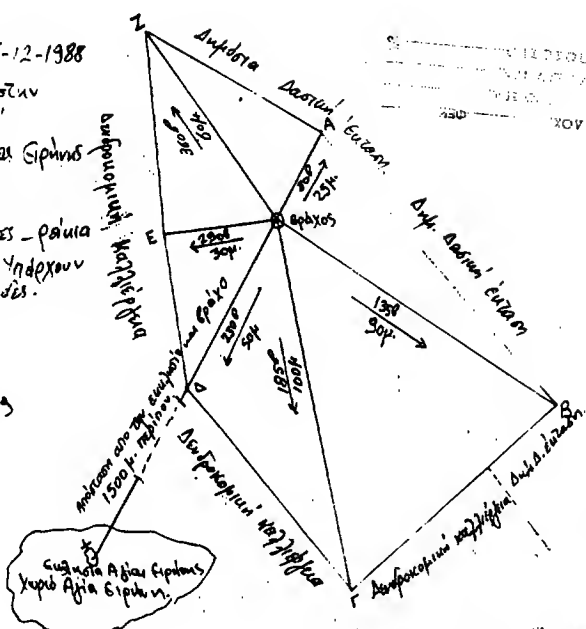 -12-1988
στην
Ειρήνης
ες - ράκια
Υπάρχουν
Ζ
Δημόσια
Δασική έκταση
Α
360θ
70μ
80θ
25μ.
Δενδροκομική καλλιέργεια
Ε
290θ
30μ.
βράχος
Δημ. Δασική έκταση
135θ
90μ.
230θ
50μ
185θ
100μ
Δ
Β
απόσταση από την εκκλησία και βράχο
1500 μ. περίπου
Δενδροκομική καλλιέργεια
Δενδροκομική καλλιέργεια
Δημ. Δ. έκταση
Γ
Εκλησία Αγίας Ειρήνης
Χωριό Αγία Ειρήνη.